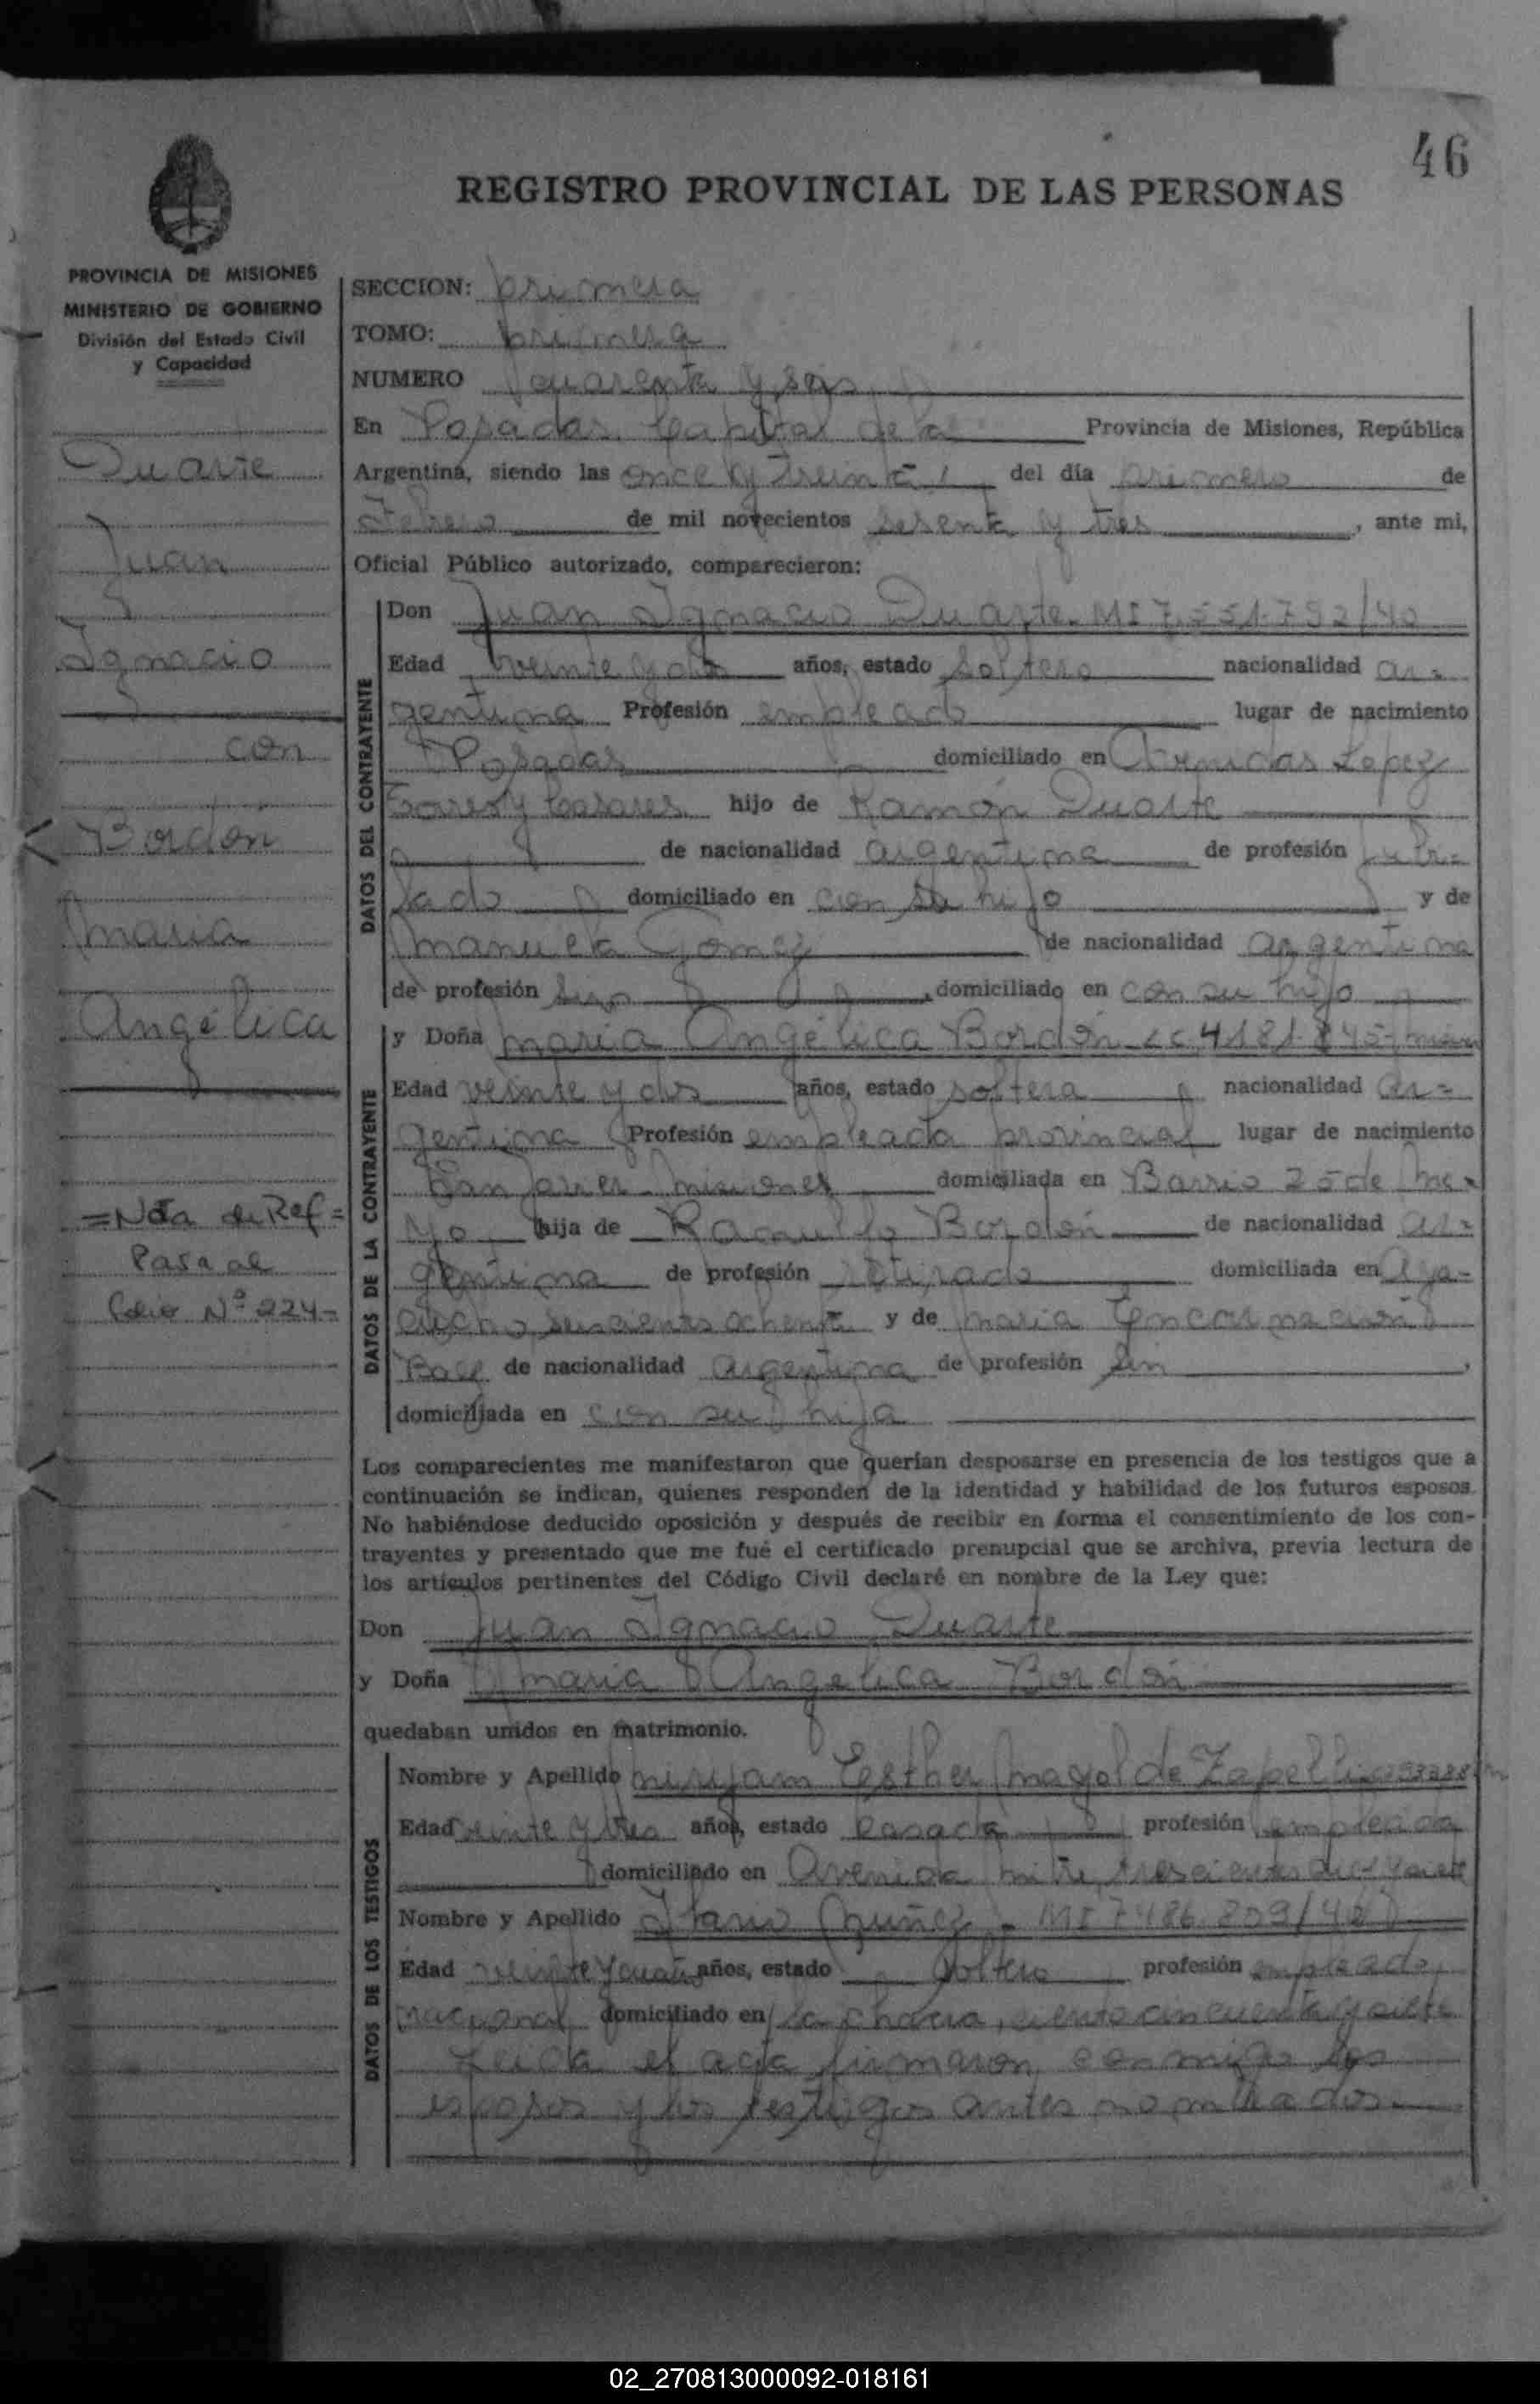 46
REGISTRO PROVINCIAL DE LAS PERSONAS
PROVINCIA DE MISIONES
MINISTERIO DE GOBIERNO
División del Estado Civil
y Capacidad
Duarte
Juan
Ignacio
con
Bordón
Maria
Angélica
=Nota de Ref=
Pasa al
Folio Nº 224-
SECCION: primera
TOMO: primera
NUMERO cuarenta y seis
En Posadas Capital de la Provincia de Misiones, República
Argentina, siendo las once y treinta del día primero de
Febrero de mil novecientos sesenta y tres, ante mi,
Oficial Público autorizado, comparecieron:
DATOS DEL CONTRAYENTE
Don Juan Ignacio Duarte. MI 7.551.792/40
Edad veinte y años, estado soltero nacionalidad ar-
gentina Profesión empleado lugar de nacimiento
Posadas domiciliado en Avenidas Lopez
Torres y Casares hijo de Ramón Duarte
de nacionalidad argentina de profesión jubi-
lado domiciliado en con su hijo y de
Manuela Gomez de nacionalidad argentina
de profesión , domiciliado en con su hijo
DATOS DE LA CONTRAYENTE
y Doña Maria Angélica Bordón LC 4181.845
Edad veinte y dos años, estado soltera nacionalidad ar-
gentina Profesión empleada provincial lugar de nacimiento
San Javier Misiones domiciliada en Barrio 25 de Ma-
yo hija de Ramulfo Bordón de nacionalidad ar-
gentina de profesión retirado domiciliada en Aya-
cucho seiscientos ochenta y de Maria Encarnación
de nacionalidad argentina de profesión sin
domiciliada en con su hija
Los comparecientes me manifestaron que querían desposarse en presencia de los testigos que a
continuación se indican, quienes responden de la identidad y habilidad de los futuros esposos.
No habiéndose deducido oposición y después de recibir en forma el consentimiento de los con-
trayentes y presentado que me fué el certificado prenupcial que se archiva, previa lectura de
los artículos pertinentes del Código Civil declaré en nombre de la Ley que:
Don Juan Ignacio Duarte
y Doña Maria Angelica Bordón
quedaban unidos en matrimonio.
DATOS DE LOS TESTIGOS
Nombre y Apellido Miryam Esther Mayol de Zapelli
Edad veinte y tres años, estado casada profesión empleada
domiciliado en Avenida Mitre, trescientos diez y siete
Nombre y Apellido Núñez - MI 7486.809/40
Edad veinte y cuatro años, estado soltero profesión empleado
nacional domiciliado en la chacra, ciento cincuenta y siete
Leida el acta firmaron conmigo los
esposos y los testigos antes nombrados.
02_270813000092-018161